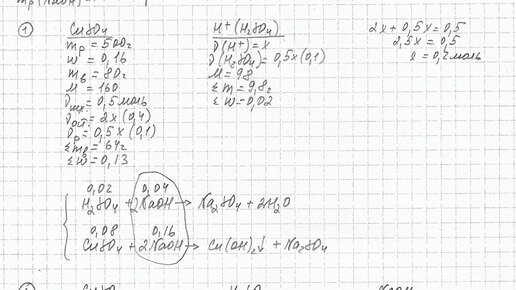 mр(NaOH) =
① CuSO4
mр = 500г
w = 0,16
mв = 80г
M = 160
νисх = 0,5моль
νост = 2x (0,4)
νр = 0,5x (0,1)
εmв = 64г
εw = 0,13
H+ (H2SO4)
ν(H+) = x
ν(H2SO4) = 0,5x (0,1)
M = 98
εm = 9,8г
εw = 0,02
2x + 0,5x = 0,5
2,5x = 0,5
x = 0,2моль
0,02 0,04
H2SO4 + 2NaOH → Na2SO4 + 2H2O
0,08 0,16
CuSO4 + 2NaOH → Cu(OH)2↓ + Na2SO4